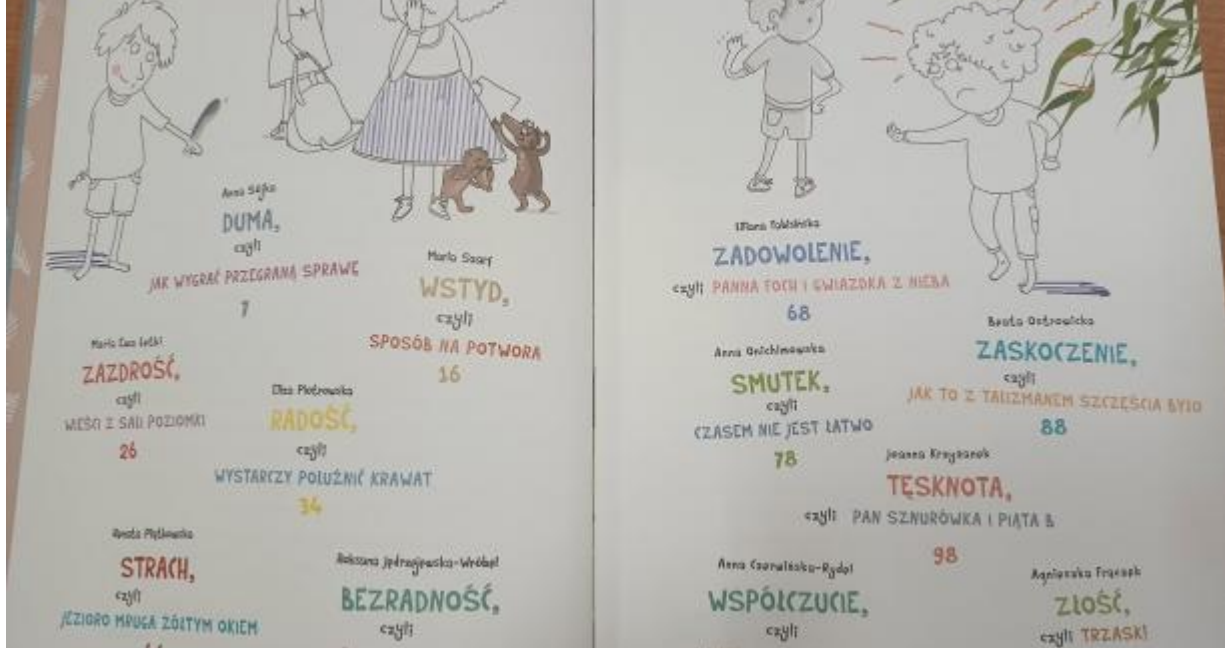 Anna Sójka
DUMA,
czyli
JAK WYGRAĆ PRZEGRANĄ SPRAWĘ
7
Maria Szarf
WSTYD,
czyli
SPOSÓB NA POTWORA
16
Maria Ewa Letki
ZAZDROŚĆ,
czyli
WIEŚCI Z SALI POZIOMKI
26
Eliza Piotrowska
RADOŚĆ,
czyli
WYSTARCZY POLUŹNIĆ KRAWAT
34
Renata Piątkowska
STRACH,
czyli
JEZIORO MRUGA ŻÓŁTYM OKIEM
Roksana Jędrzejewska-Wróbel
BEZRADNOŚĆ,
czyli
Liliana Fabisińska
ZADOWOLENIE,
czyli PANNA FOCH I GWIAZDKA Z NIEBA
68
Anna Onichimowska
SMUTEK,
czyli
CZASEM NIE JEST ŁATWO
78
Beata Ostrowicka
ZASKOCZENIE,
czyli
JAK TO Z TALIZMANEM SZCZĘŚCIA BYŁO
88
Joanna Krzyżanek
TĘSKNOTA,
czyli PAN SZNURÓWKA I PIĄTA B
98
Anna Czerwińska-Rydel
WSPÓŁCZUCIE,
czyli
Agnieszka Frączek
ZŁOŚĆ,
czyli TRZASK!